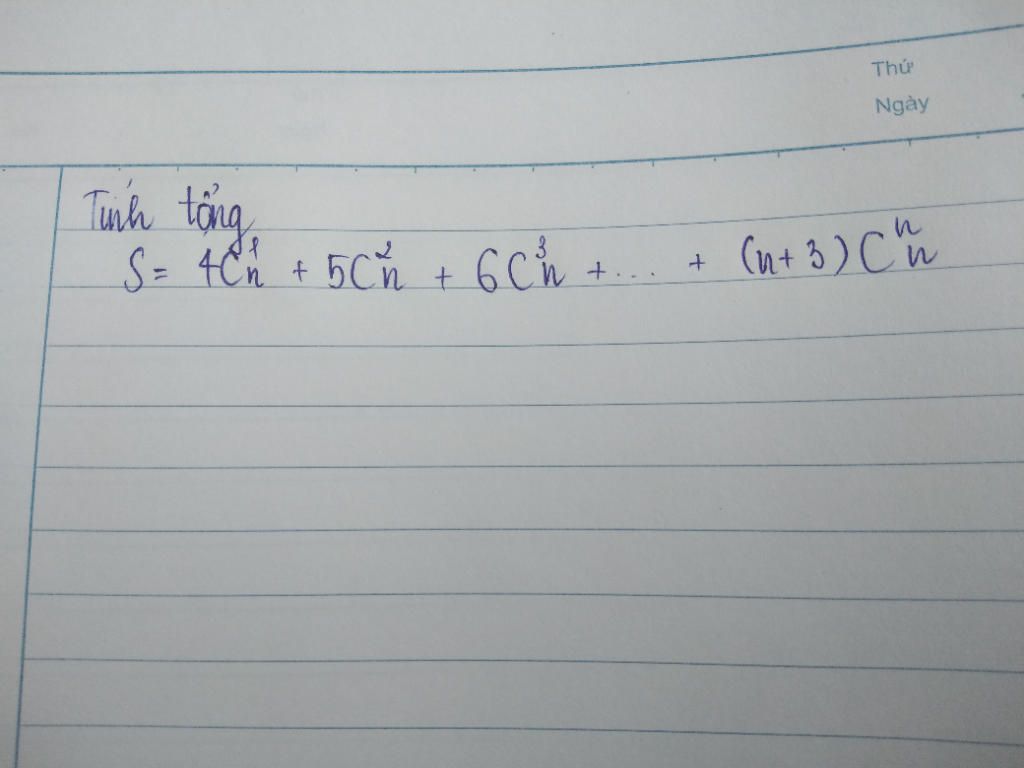 Thứ
Ngày
Tính tổng
S = 4C¹n + 5C²n + 6C³n + .... + (n+3)Cⁿn